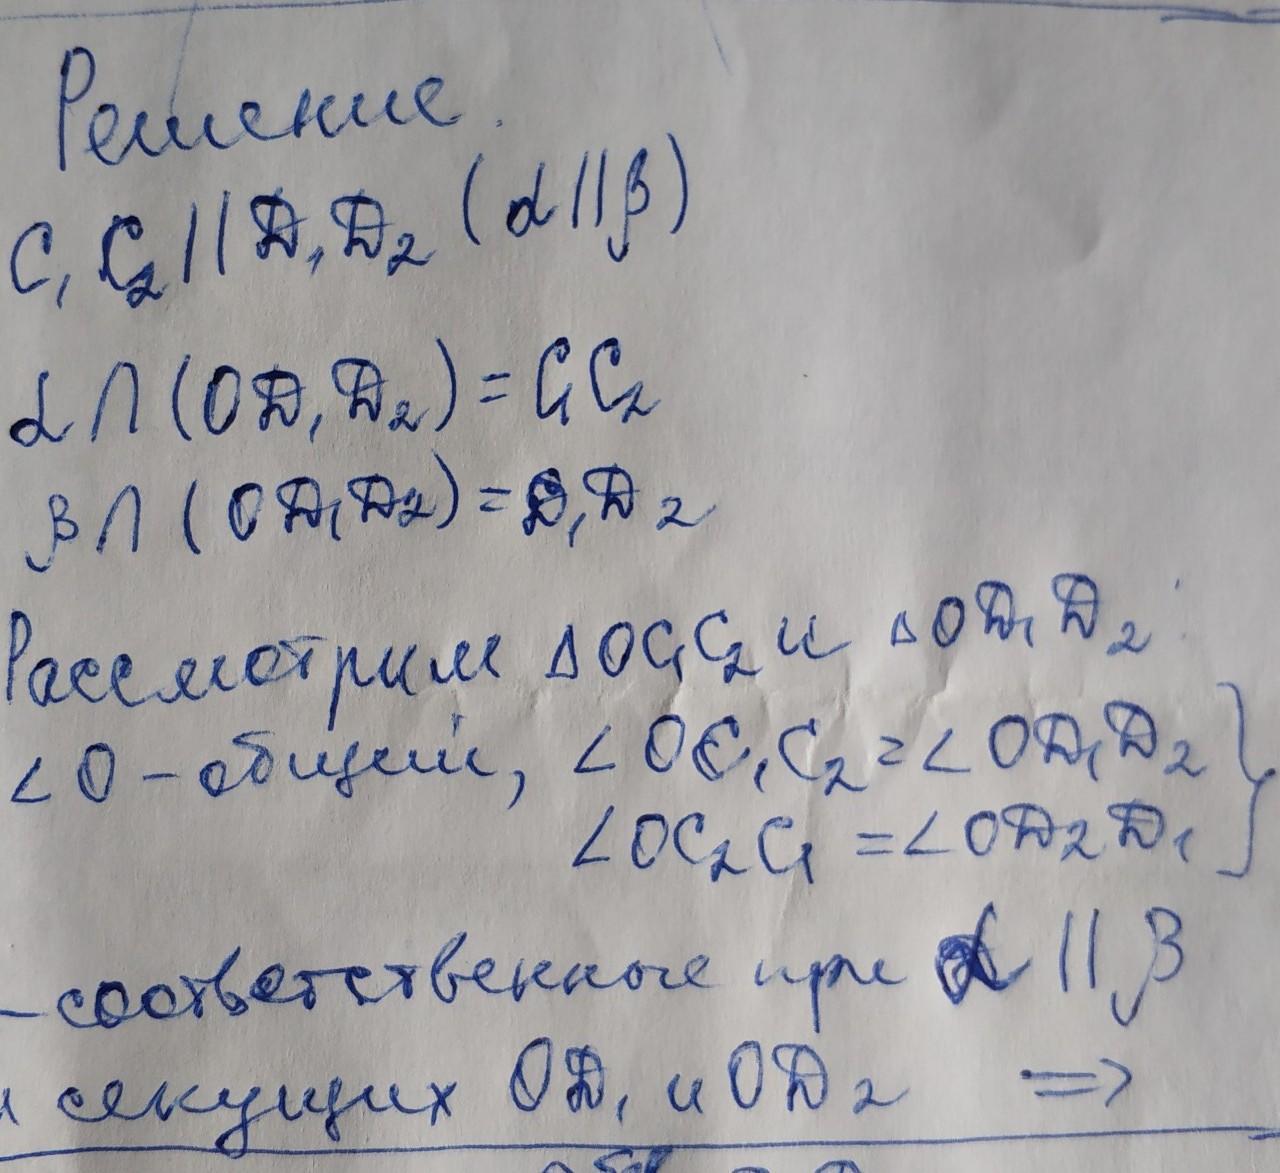 Решение.
C₁C₂ || D₁D₂ (α || β)
α ∩ (OD₁D₂) = C₁C₂
β ∩ (OD₁D₂) = D₁D₂
Рассмотрим ΔOC₁C₂ и ΔOD₁D₂:
∠O – общий, ∠OC₁C₂ = ∠OD₁D₂ }
∠OC₂C₁ = ∠OD₂D₁
– соответственные при α || β
и секущих OD₁ и OD₂ =>